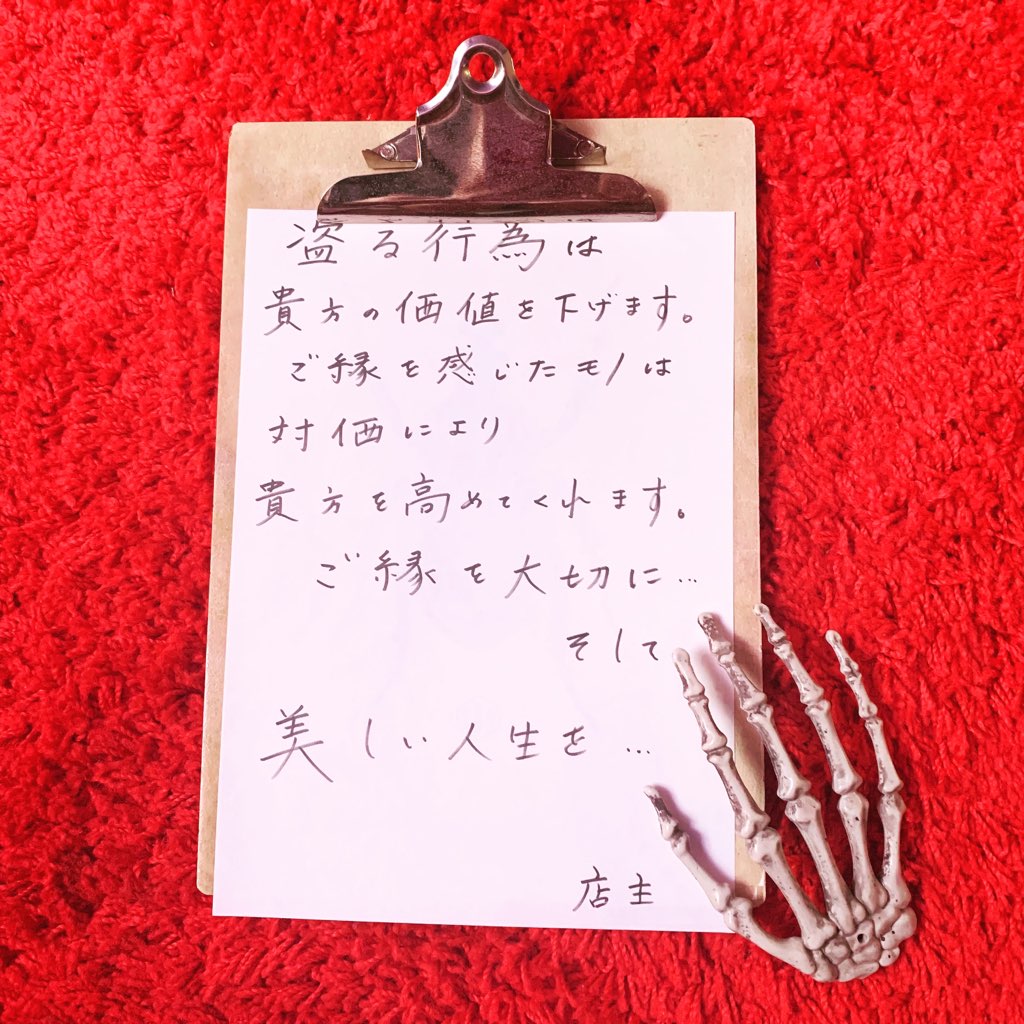 盗る行為は
貴方の価値を下げます。
ご縁を感じたモノは
対価により
貴方を高めてくれます。
ご縁を大切に…
そして
美しい人生を…
店主